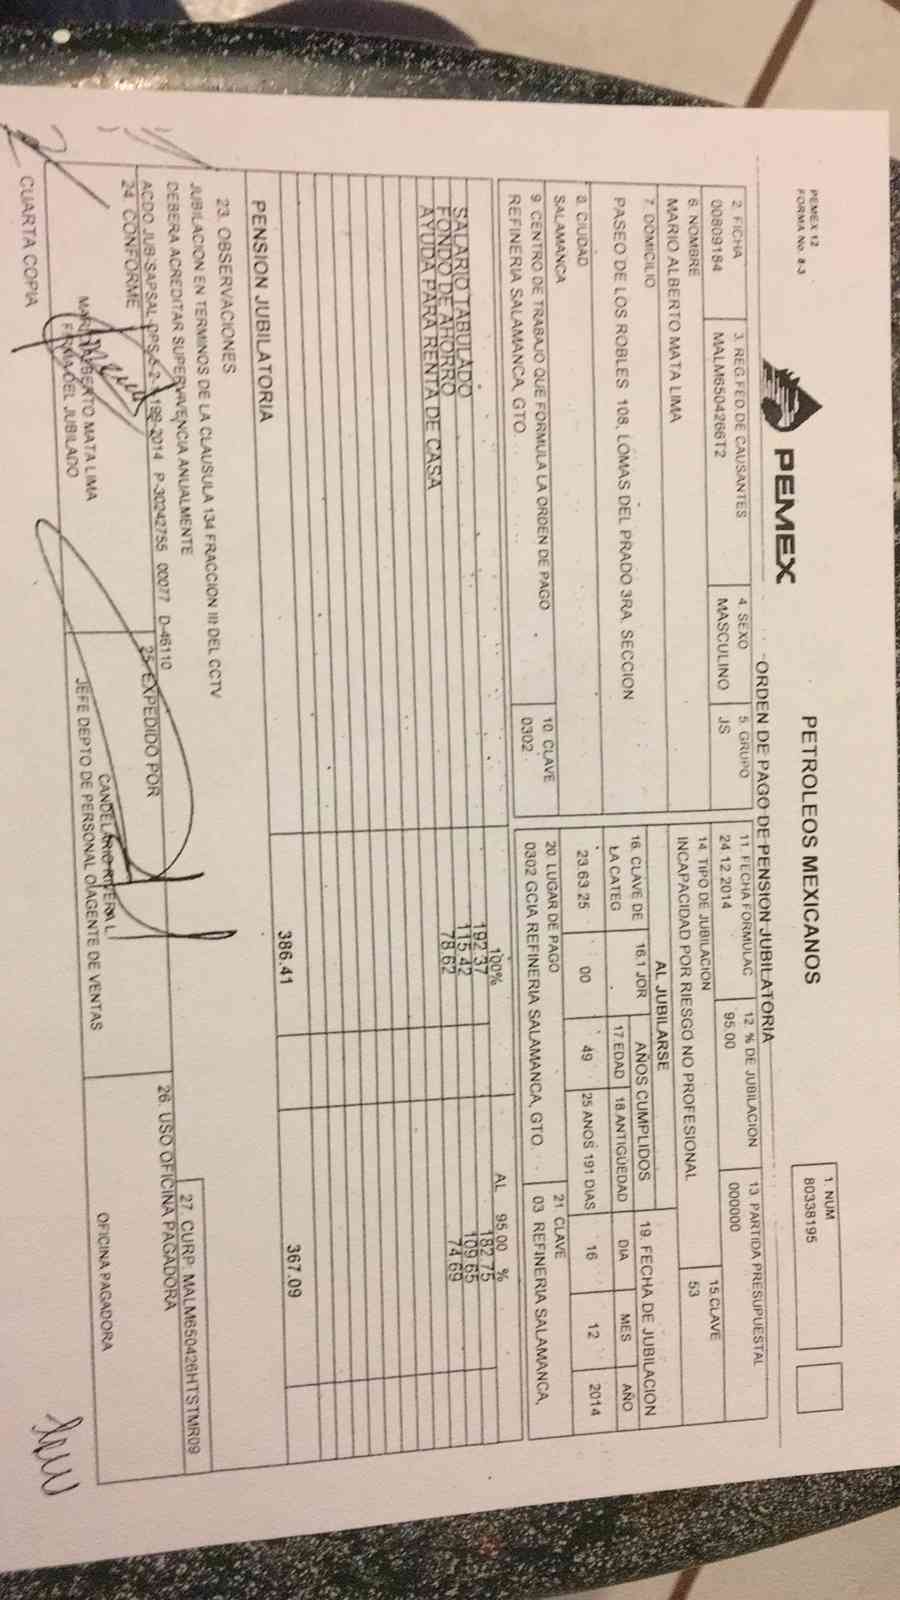 PEMEX 12
FORMA No. 8-3
PEMEX
PETROLEOS MEXICANOS
ORDEN DE PAGO DE PENSION JUBILATORIA
1. NUM
80338195
2. FICHA
00809184
3. REG.FED.DE CAUSANTES
MALM6504266T2
4. SEXO
MASCULINO
5. GRUPO
JS
6. NOMBRE
MARIO ALBERTO MATA LIMA
7. DOMICILIO
PASEO DE LOS ROBLES 108, LOMAS DEL PRADO 3RA. SECCION
8. CIUDAD
SALAMANCA
9. CENTRO DE TRABAJO QUE FORMULA LA ORDEN DE PAGO
REFINERIA SALAMANCA, GTO.
10. CLAVE
0302
11. FECHA FORMULAC
24.12.2014
12. % DE JUBILACION
95.00
13. PARTIDA PRESUPUESTAL
000000
14. TIPO DE JUBILACION
INCAPACIDAD POR RIESGO NO PROFESIONAL
15.CLAVE
53
AL JUBILARSE
16. CLAVE DE
LA CATEG
23.63.25
16.1 JOR
00
AÑOS CUMPLIDOS
17.EDAD
49
18.ANTIGÜEDAD
25 AÑOS 191 DIAS
19. FECHA DE JUBILACION
DIA MES AÑO
16 12 2014
20. LUGAR DE PAGO
0302 GCIA REFINERIA SALAMANCA, GTO.
21. CLAVE
03 REFINERIA SALAMANCA,
100% AL 95.00 %
SALARIO TABULADO 192.37 182.75
FONDO DE AHORRO 115.42 109.65
AYUDA PARA RENTA DE CASA 78.62 74.69
PENSION JUBILATORIA 386.41 367.09
23. OBSERVACIONES
JUBILACION EN TERMINOS DE LA CLAUSULA 134 FRACCION III DEL CCTV
DEBERA ACREDITAR SUPERVIVENCIA ANUALMENTE
ACDO.JUB-SAPSAL-DPS-5-2- 199-2014 P-30242755 00077 D-46110
27. CURP: MALM650426HTSTMR09
24. CONFORME
MARIO ALBERTO MATA LIMA
FIRMA DEL JUBILADO
25. EXPEDIDO POR
CANDELARIO RIVERA L.
JEFE DEPTO DE PERSONAL O AGENTE DE VENTAS
26. USO OFICINA PAGADORA
OFICINA PAGADORA
CUARTA COPIA